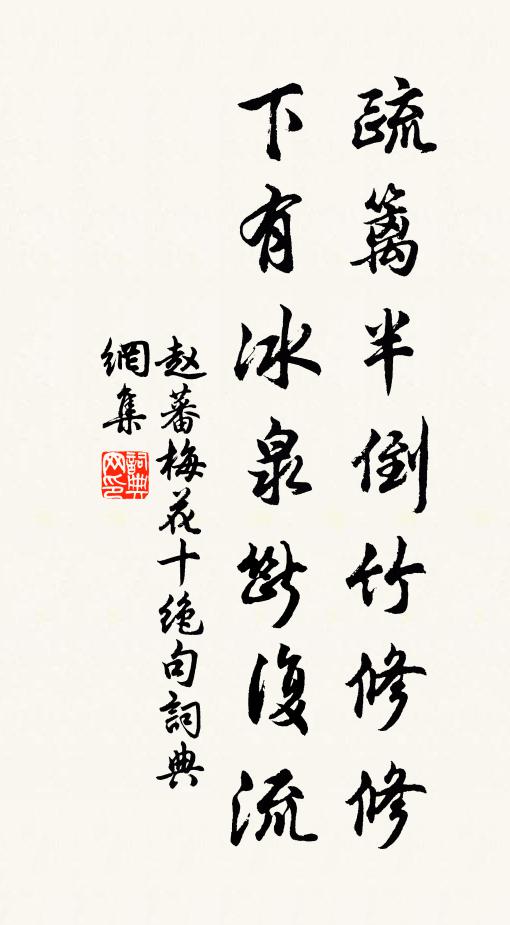 疏篱半倒竹修修
下有冰泉断復流
赵蕃梅花十绝句詞典
網集
詞典網印